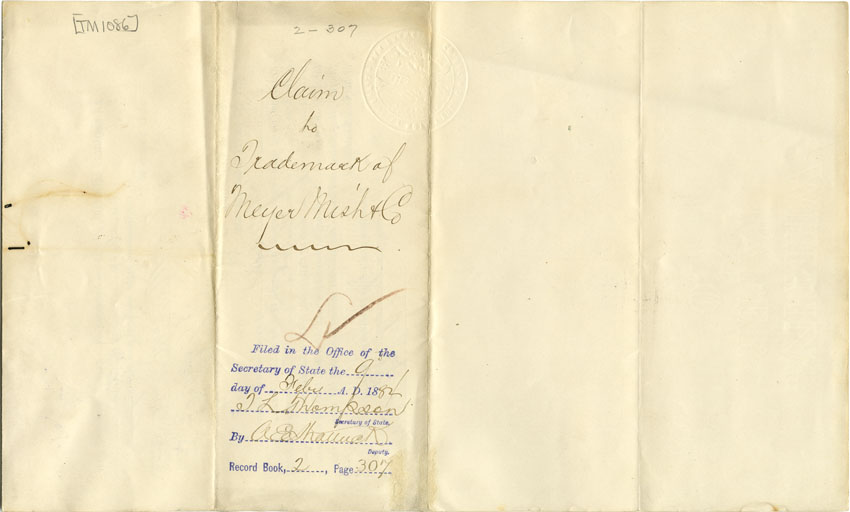 [TM1086]
2-307
Claim
to
Trademark of
Meyer Mish & Co
Filed in the Office of the
Secretary of State the 9
day of Feby A. D. 1884
T L Thompson
Secretary of State.
By A. B.
Deputy.
Record Book, 2, Page 307